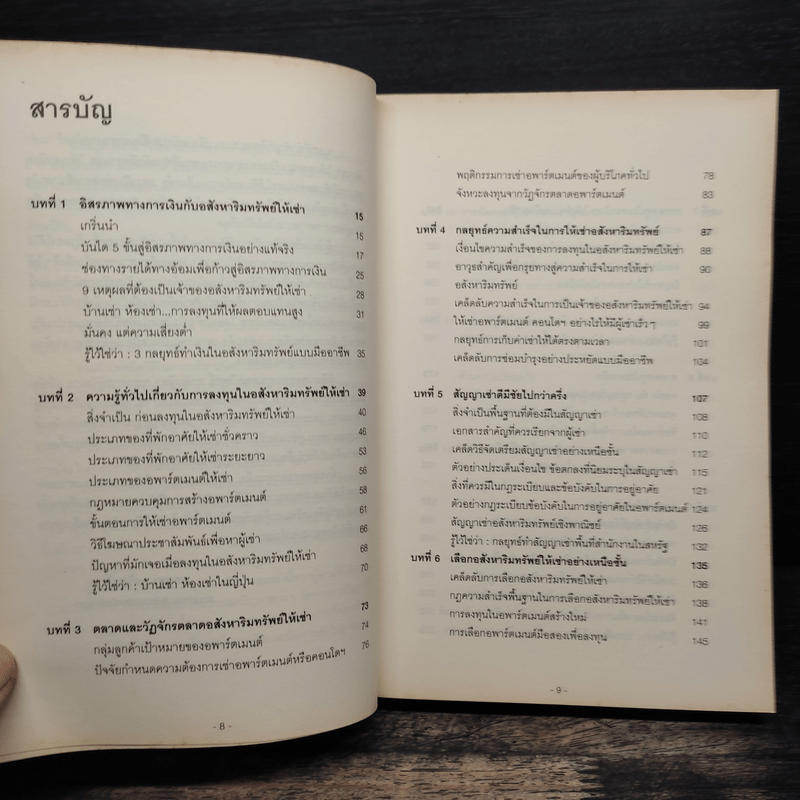 สารบัญ
บทที่ 1 อิสรภาพทางการเงินกับอสังหาริมทรัพย์ให้เช่า 15
เกริ่นนำ 15
บันได 5 ขั้นสู่อิสรภาพทางการเงินอย่างแท้จริง 17
ช่องทางรายได้ทางอ้อมเพื่อก้าวสู่อิสรภาพทางการเงิน 25
9 เหตุผลที่ต้องเป็นเจ้าของอสังหาริมทรัพย์ให้เช่า 28
บ้านเช่า ห้องเช่า...การลงทุนที่ให้ผลตอบแทนสูง 31
มั่นคง แต่ความเสี่ยงต่ำ
รู้ไว้ใช่ว่า : 3 กลยุทธ์ทำเงินในอสังหาริมทรัพย์แบบมืออาชีพ 35
บทที่ 2 ความรู้ทั่วไปเกี่ยวกับการลงทุนในอสังหาริมทรัพย์ให้เช่า 39
สิ่งจำเป็น ก่อนลงทุนในอสังหาริมทรัพย์ให้เช่า 40
ประเภทของที่พักอาศัยให้เช่าชั่วคราว 46
ประเภทของที่พักอาศัยให้เช่าระยะยาว 53
ประเภทของอพาร์ตเมนต์ให้เช่า 56
กฎหมายควบคุมการสร้างอพาร์ตเมนต์ 58
ขั้นตอนการให้เช่าอพาร์ตเมนต์ 61
วิธีโฆษณาประชาสัมพันธ์เพื่อหาผู้เช่า 66
ปัญหาที่มักเจอเมื่อลงทุนในอสังหาริมทรัพย์ให้เช่า 68
รู้ไว้ใช่ว่า : บ้านเช่า ห้องเช่าในญี่ปุ่น 70
บทที่ 3 ตลาดและวัฏจักรตลาดอสังหาริมทรัพย์ให้เช่า 73
กลุ่มลูกค้าเป้าหมายของอพาร์ตเมนต์ 74
ปัจจัยกำหนดความต้องการเช่าอพาร์ตเมนต์หรือคอนโดฯ 76
- 8 -
พฤติกรรมการเช่าอพาร์ตเมนต์ของผู้บริโภคทั่วไป 78
จังหวะลงทุนจากวัฏจักรตลาดอพาร์ตเมนต์ 83
บทที่ 4 กลยุทธ์ความสำเร็จในการให้เช่าอสังหาริมทรัพย์ 87
เงื่อนไขความสำเร็จของการลงทุนในอสังหาริมทรัพย์ให้เช่า 88
อาวุธสำคัญเพื่อกรุยทางสู่ความสำเร็จในการให้เช่า 90
อสังหาริมทรัพย์
เคล็ดลับความสำเร็จในการเป็นเจ้าของอสังหาริมทรัพย์ให้เช่า 94
ให้เช่าอพาร์ตเมนต์ คอนโดฯ อย่างไรให้มีผู้เช่าเร็ว ๆ 99
กลยุทธ์การเก็บค่าเช่าให้ได้ตรงตามเวลา 101
เคล็ดลับการซ่อมบำรุงอย่างประหยัดแบบมืออาชีพ 104
บทที่ 5 สัญญาเช่าดีมีชัยไปกว่าครึ่ง 107
สิ่งจำเป็นพื้นฐานที่ต้องมีในสัญญาเช่า 108
เอกสารสำคัญที่ควรเรียกจากผู้เช่า 110
เคล็ดวิธีจัดเตรียมสัญญาเช่าอย่างเหนือชั้น 112
ตัวอย่างประเด็นเงื่อนไข ข้อตกลงที่นิยมระบุในสัญญาเช่า 115
สิ่งที่ควรมีในกฎระเบียบและข้อบังคับในการอยู่อาศัย 121
ตัวอย่างกฎระเบียบข้อบังคับในการอยู่อาศัยในอพาร์ตเมนต์ 124
สัญญาเช่าอสังหาริมทรัพย์เชิงพาณิชย์ 126
รู้ไว้ใช่ว่า : กลยุทธ์ทำสัญญาเช่าพื้นที่สำนักงานในสหรัฐ 132
บทที่ 6 เลือกอสังหาริมทรัพย์ให้เช่าอย่างเหนือชั้น 135
เคล็ดลับการเลือกอสังหาริมทรัพย์ให้เช่า 136
กฎความสำเร็จพื้นฐานในการเลือกอสังหาริมทรัพย์ให้เช่า 138
การลงทุนในอพาร์ตเมนต์สร้างใหม่ 141
การเลือกอพาร์ตเมนต์มือสองเพื่อลงทุน 145
- 9 -